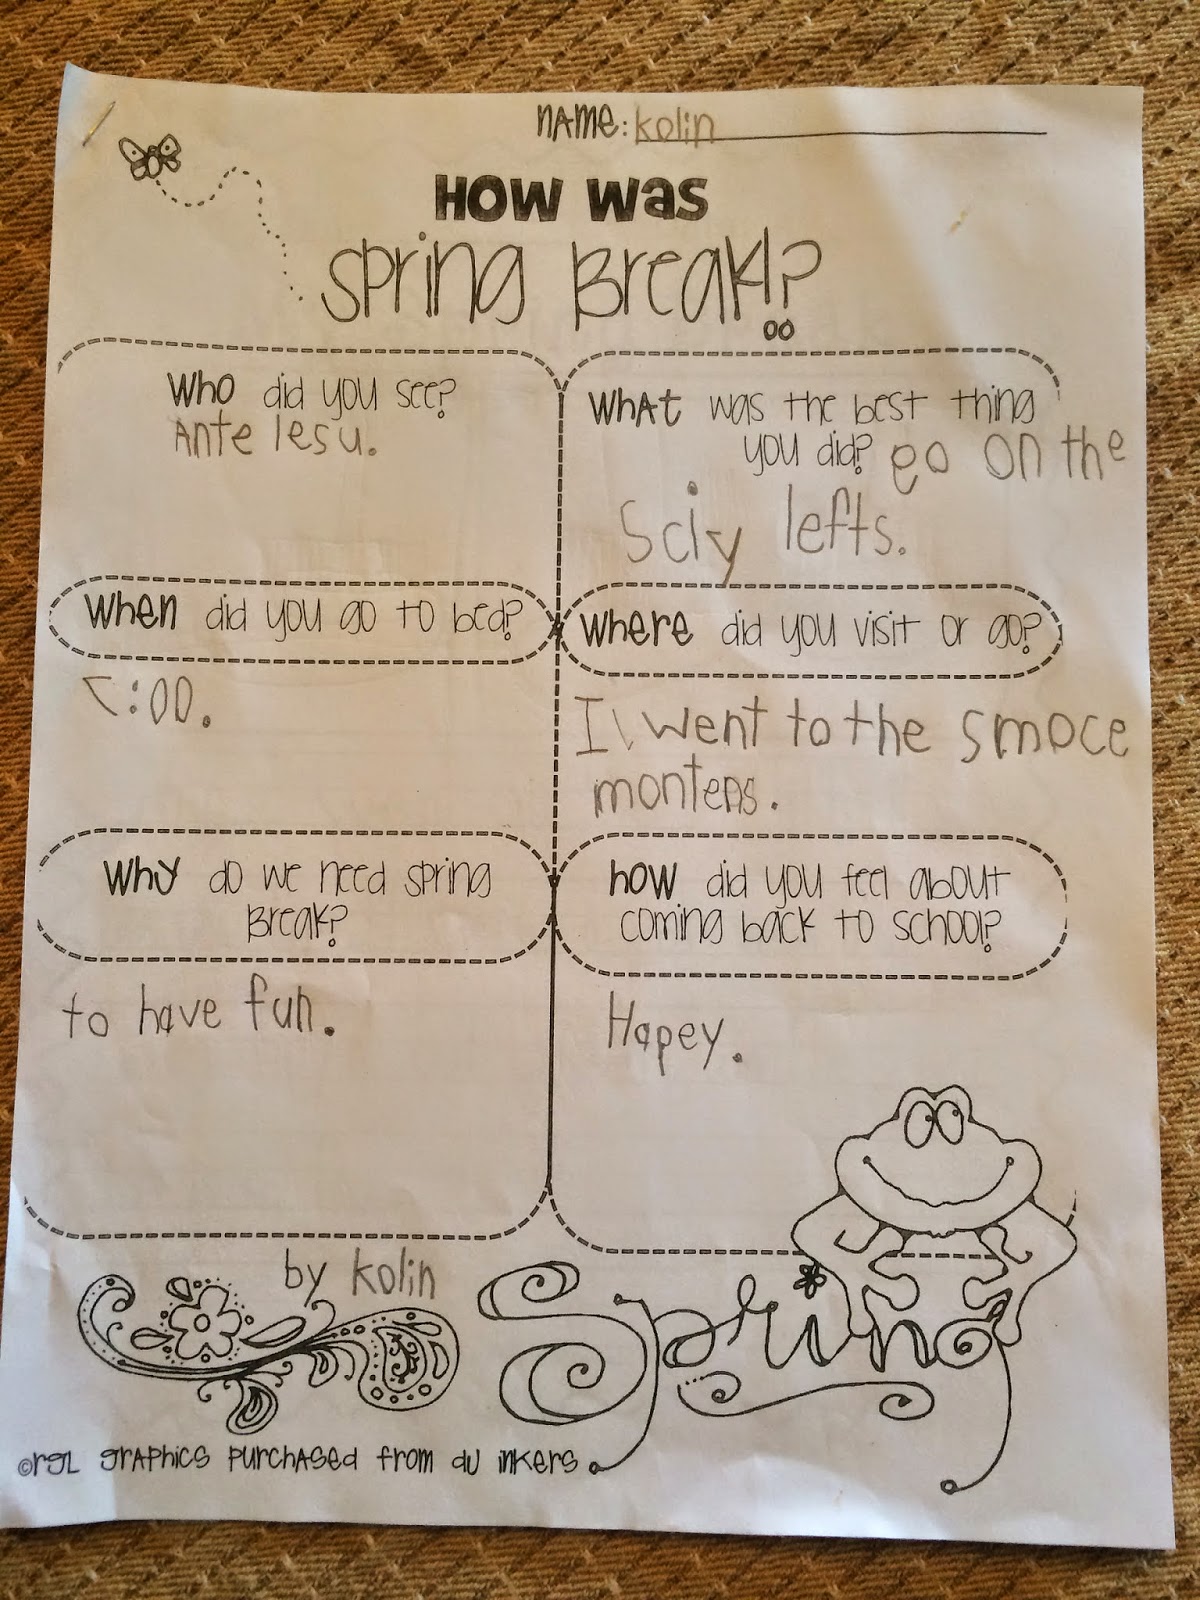 NAME: kolin
HOW WAS
Spring Break!?
WHO did you see?
Ante lesu.
WHAT was the best thing
you did? go on the
Sciy lefts.
WHEN did you go to bed?
7:00.
WHERE did you visit or go?
I went to the smoce
montens.
WHY do we need spring
Break?
to have fun.
HOW did you feel about
coming back to school?
Hapey.
by kolin
Spring
©RGL GRAPHICS PURCHASED FROM DJ INKERS